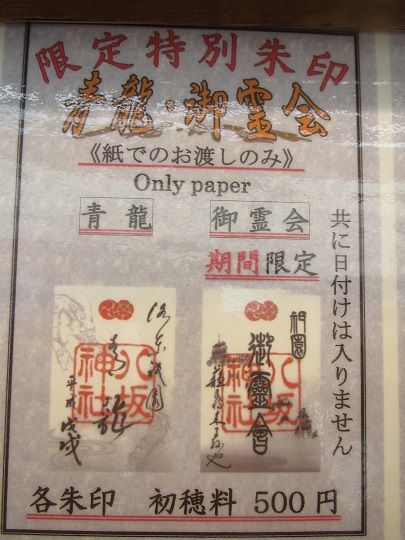 限定特別朱印
青龍・御霊会
《紙でのお渡しのみ》
Only paper
青龍
御霊会
期間限定
共に日付けは入りません
青龍
平成戊戌
八坂神社
祇園
御靈會
八坂神社
各朱印 初穂料 500円